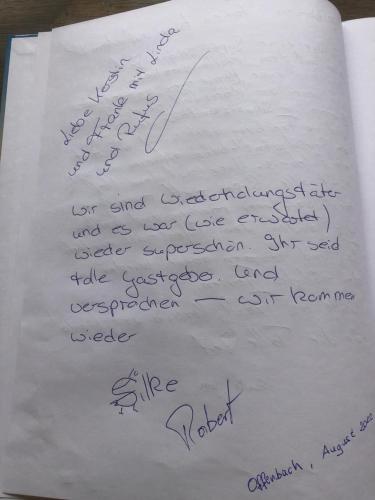 Liebe Kerstin
und Frank mit Linda
und Rufus
wir sind Wiederholungstäter
und es war (wie erwartet)
wieder superschön. Ihr seid
tolle Gastgeber. Und
versprochen — wir kommen
wieder
Silke
Robert
Offenbach, August